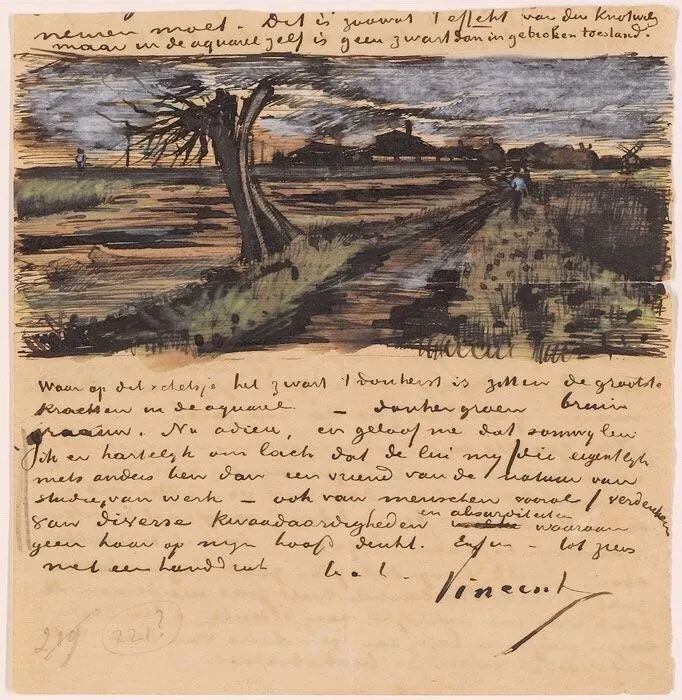 nemen moet. Dit is zoowat 't effekt van den Knotwilg
maar in de aquarel zelf is geen zwart dan in gebroken toestand.
Waar op dit schetsje het zwart 't donkerst is zitten de grootste
krachten in de aquarel – donkergroen bruin
graauw. Nu adieu, en geloof me dat somwylen
ik er hartelyk om lach dat de lui my /die eigentlyk
niets anders ben dan een vriend van de natuur van
studie, van werk – ook van menschen vooral/ verdenken
van diverse kwaadaardigheden en absurditeiten waaraan
geen haar op myn hoofd denkt. Enfin – tot ziens
met een handdruk t. à t. Vincent
219
221?